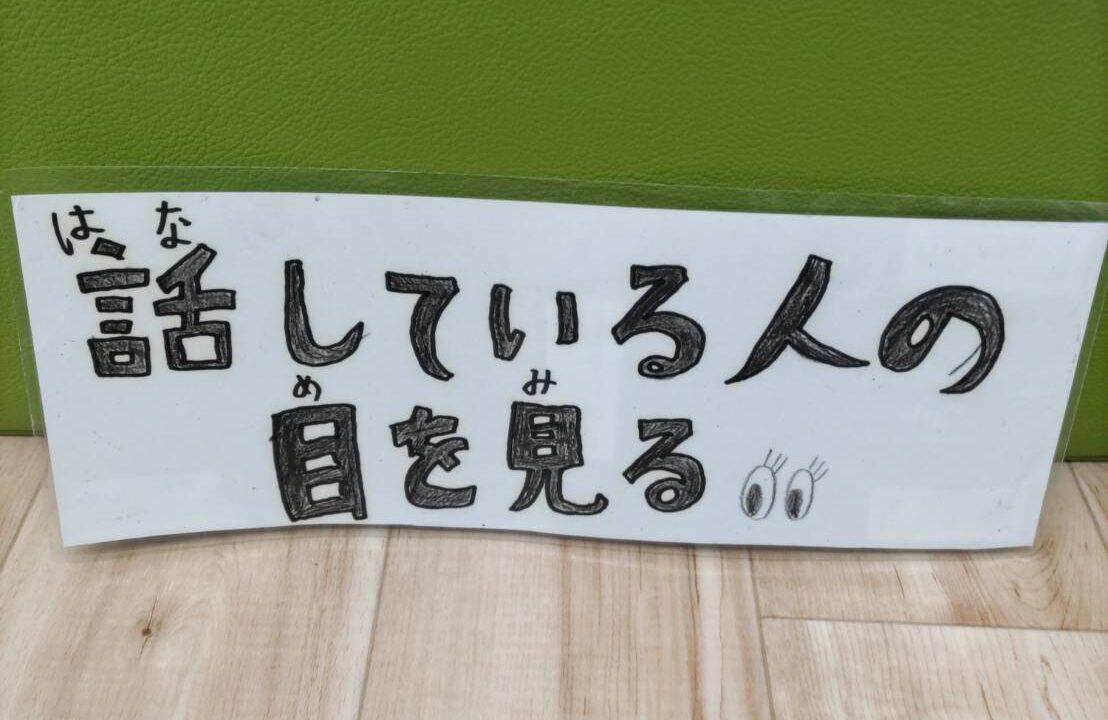 はな
話している人の
め み
目を見る